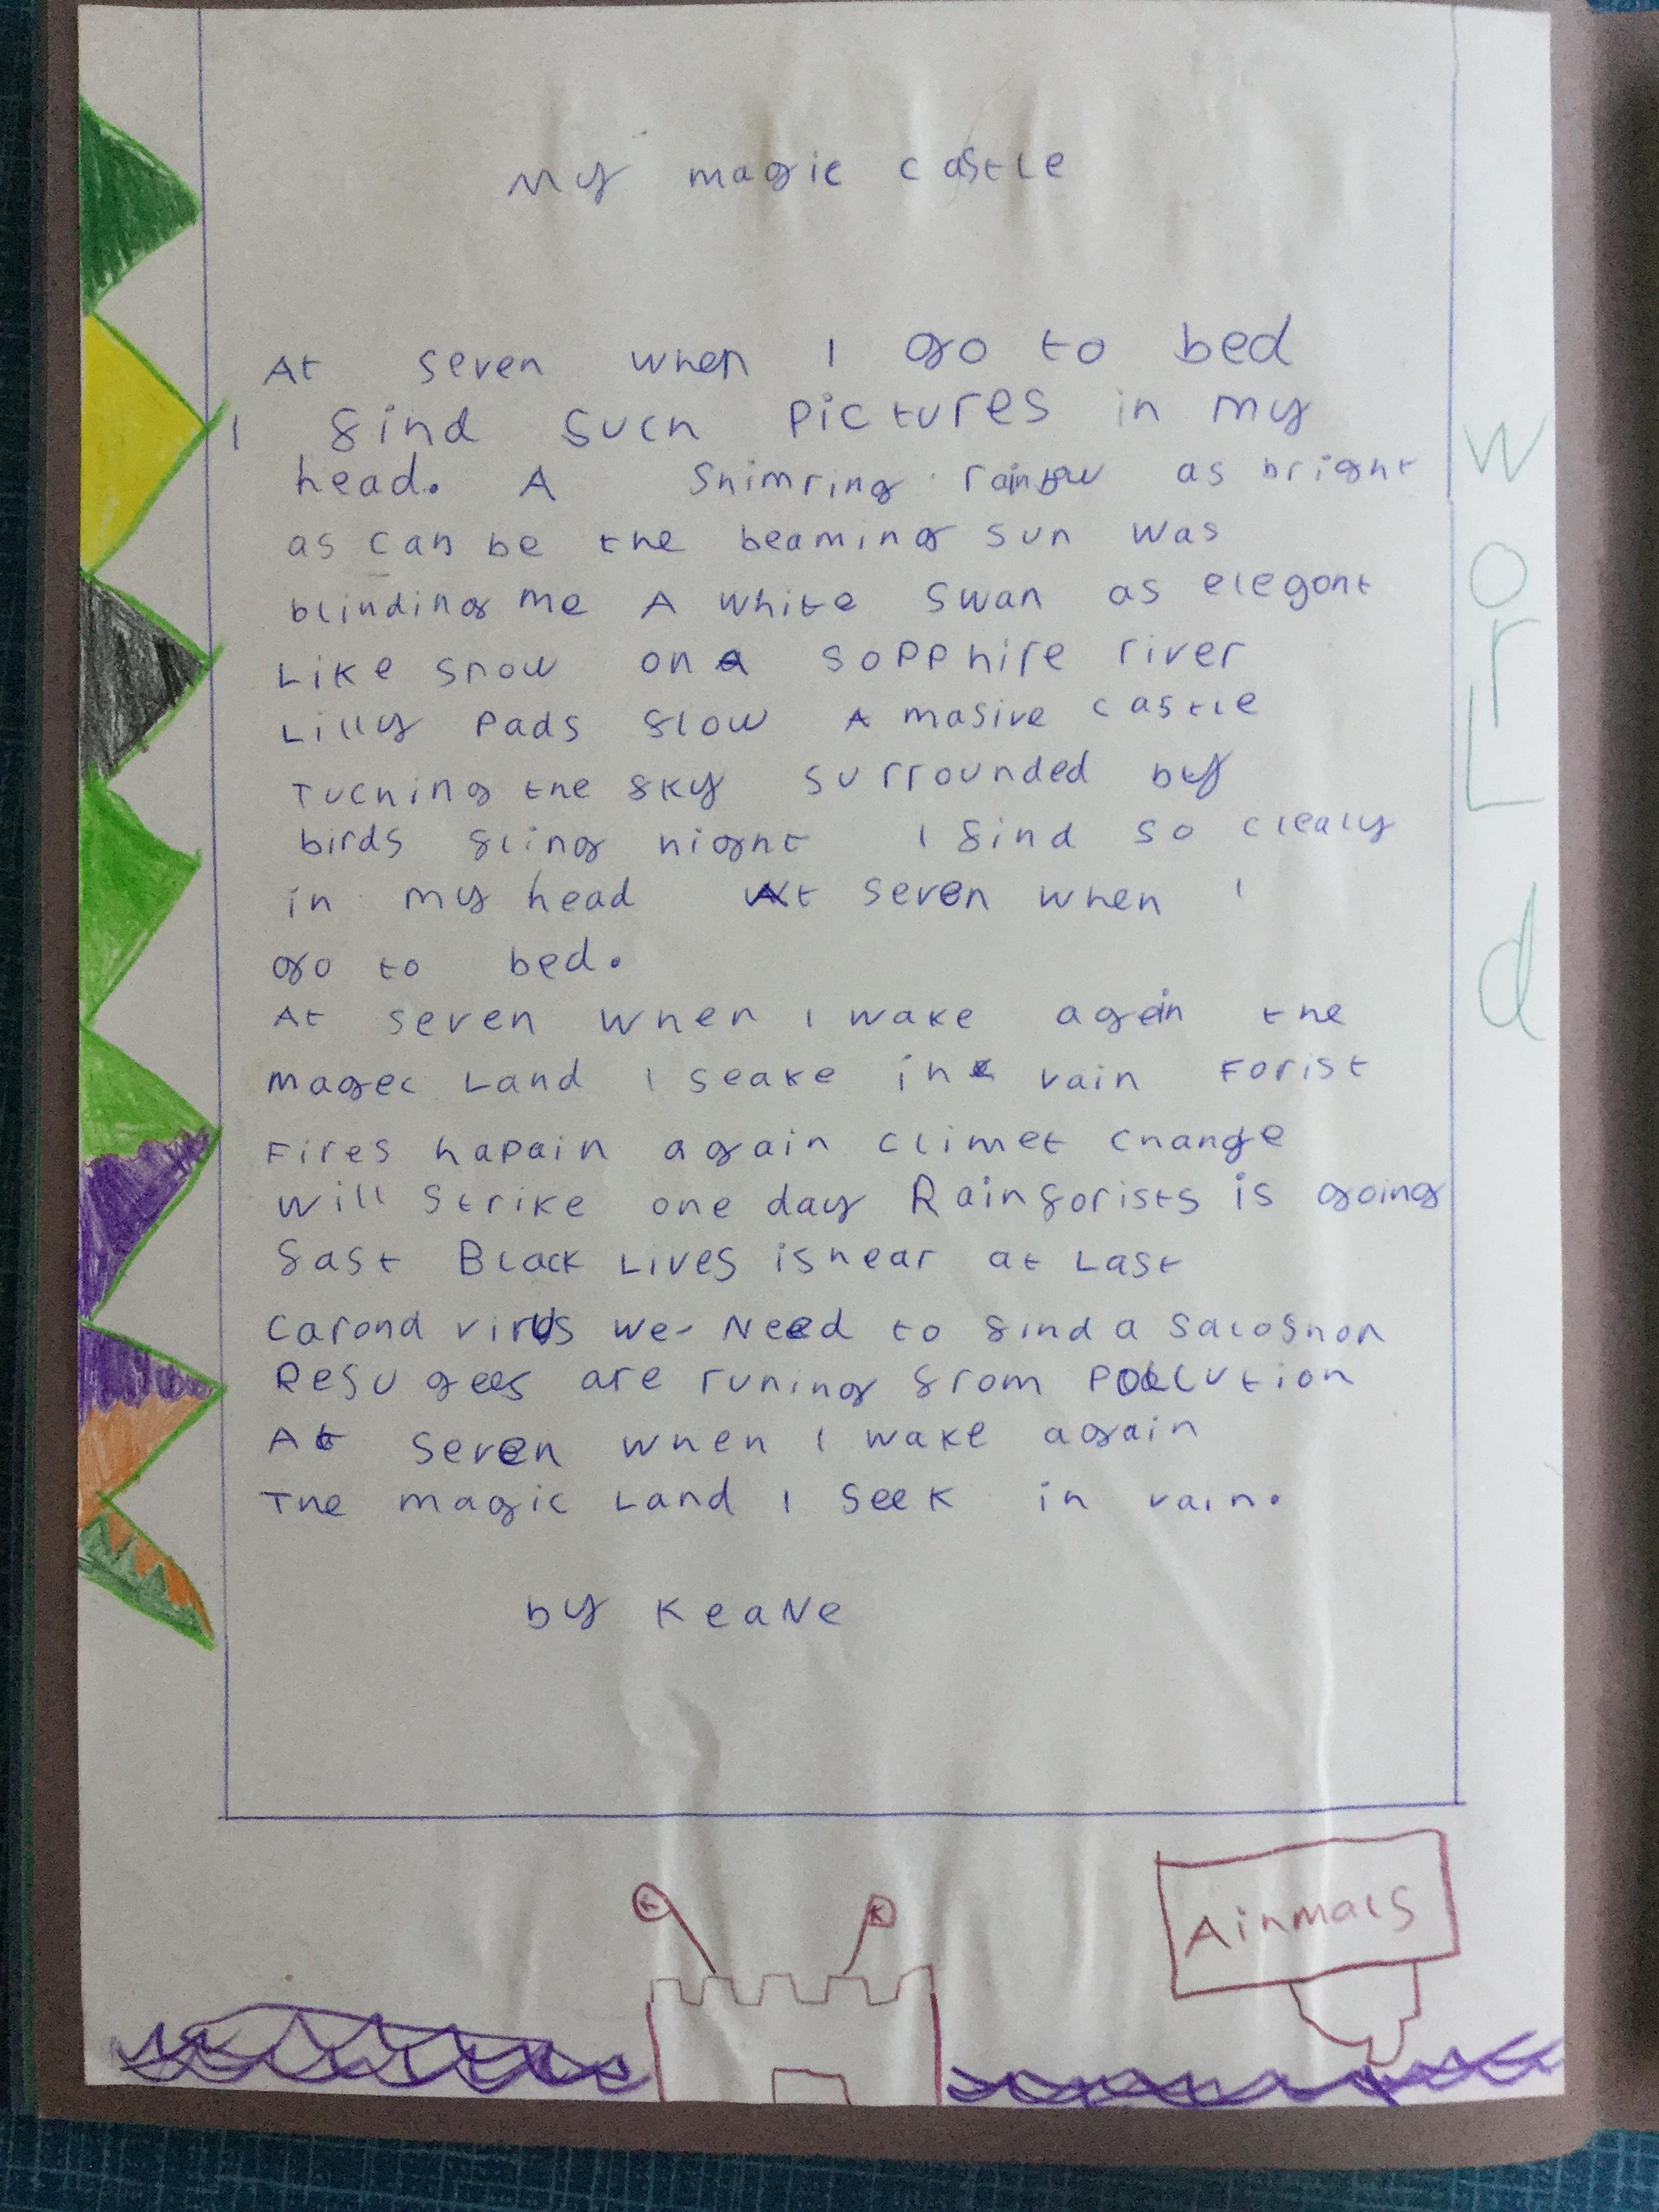 My magic castle
At seven when I go to bed
I find such pictures in my
head. A Shimring rainbow as bright
as can be the beaming sun was
blinding me A white swan as elegant
Like snow on a sopphire river
Lilly pads flow A masive castle
Tuching the sky surrounded by
birds fling hight I find so clealy
in my head At seven when I
go to bed.
At seven when I wake again the
magec Land I seake in vain Forist
Fires hapain again climet change
will strike one day Rainforists is going
fast Black Lives is near at Last
Carond virus we Need to find a
Refugees are runing from Pollution
At seven when I wake again
The magic Land I seek in vain.
by KeaNe
worLd
K
K
Ainmals